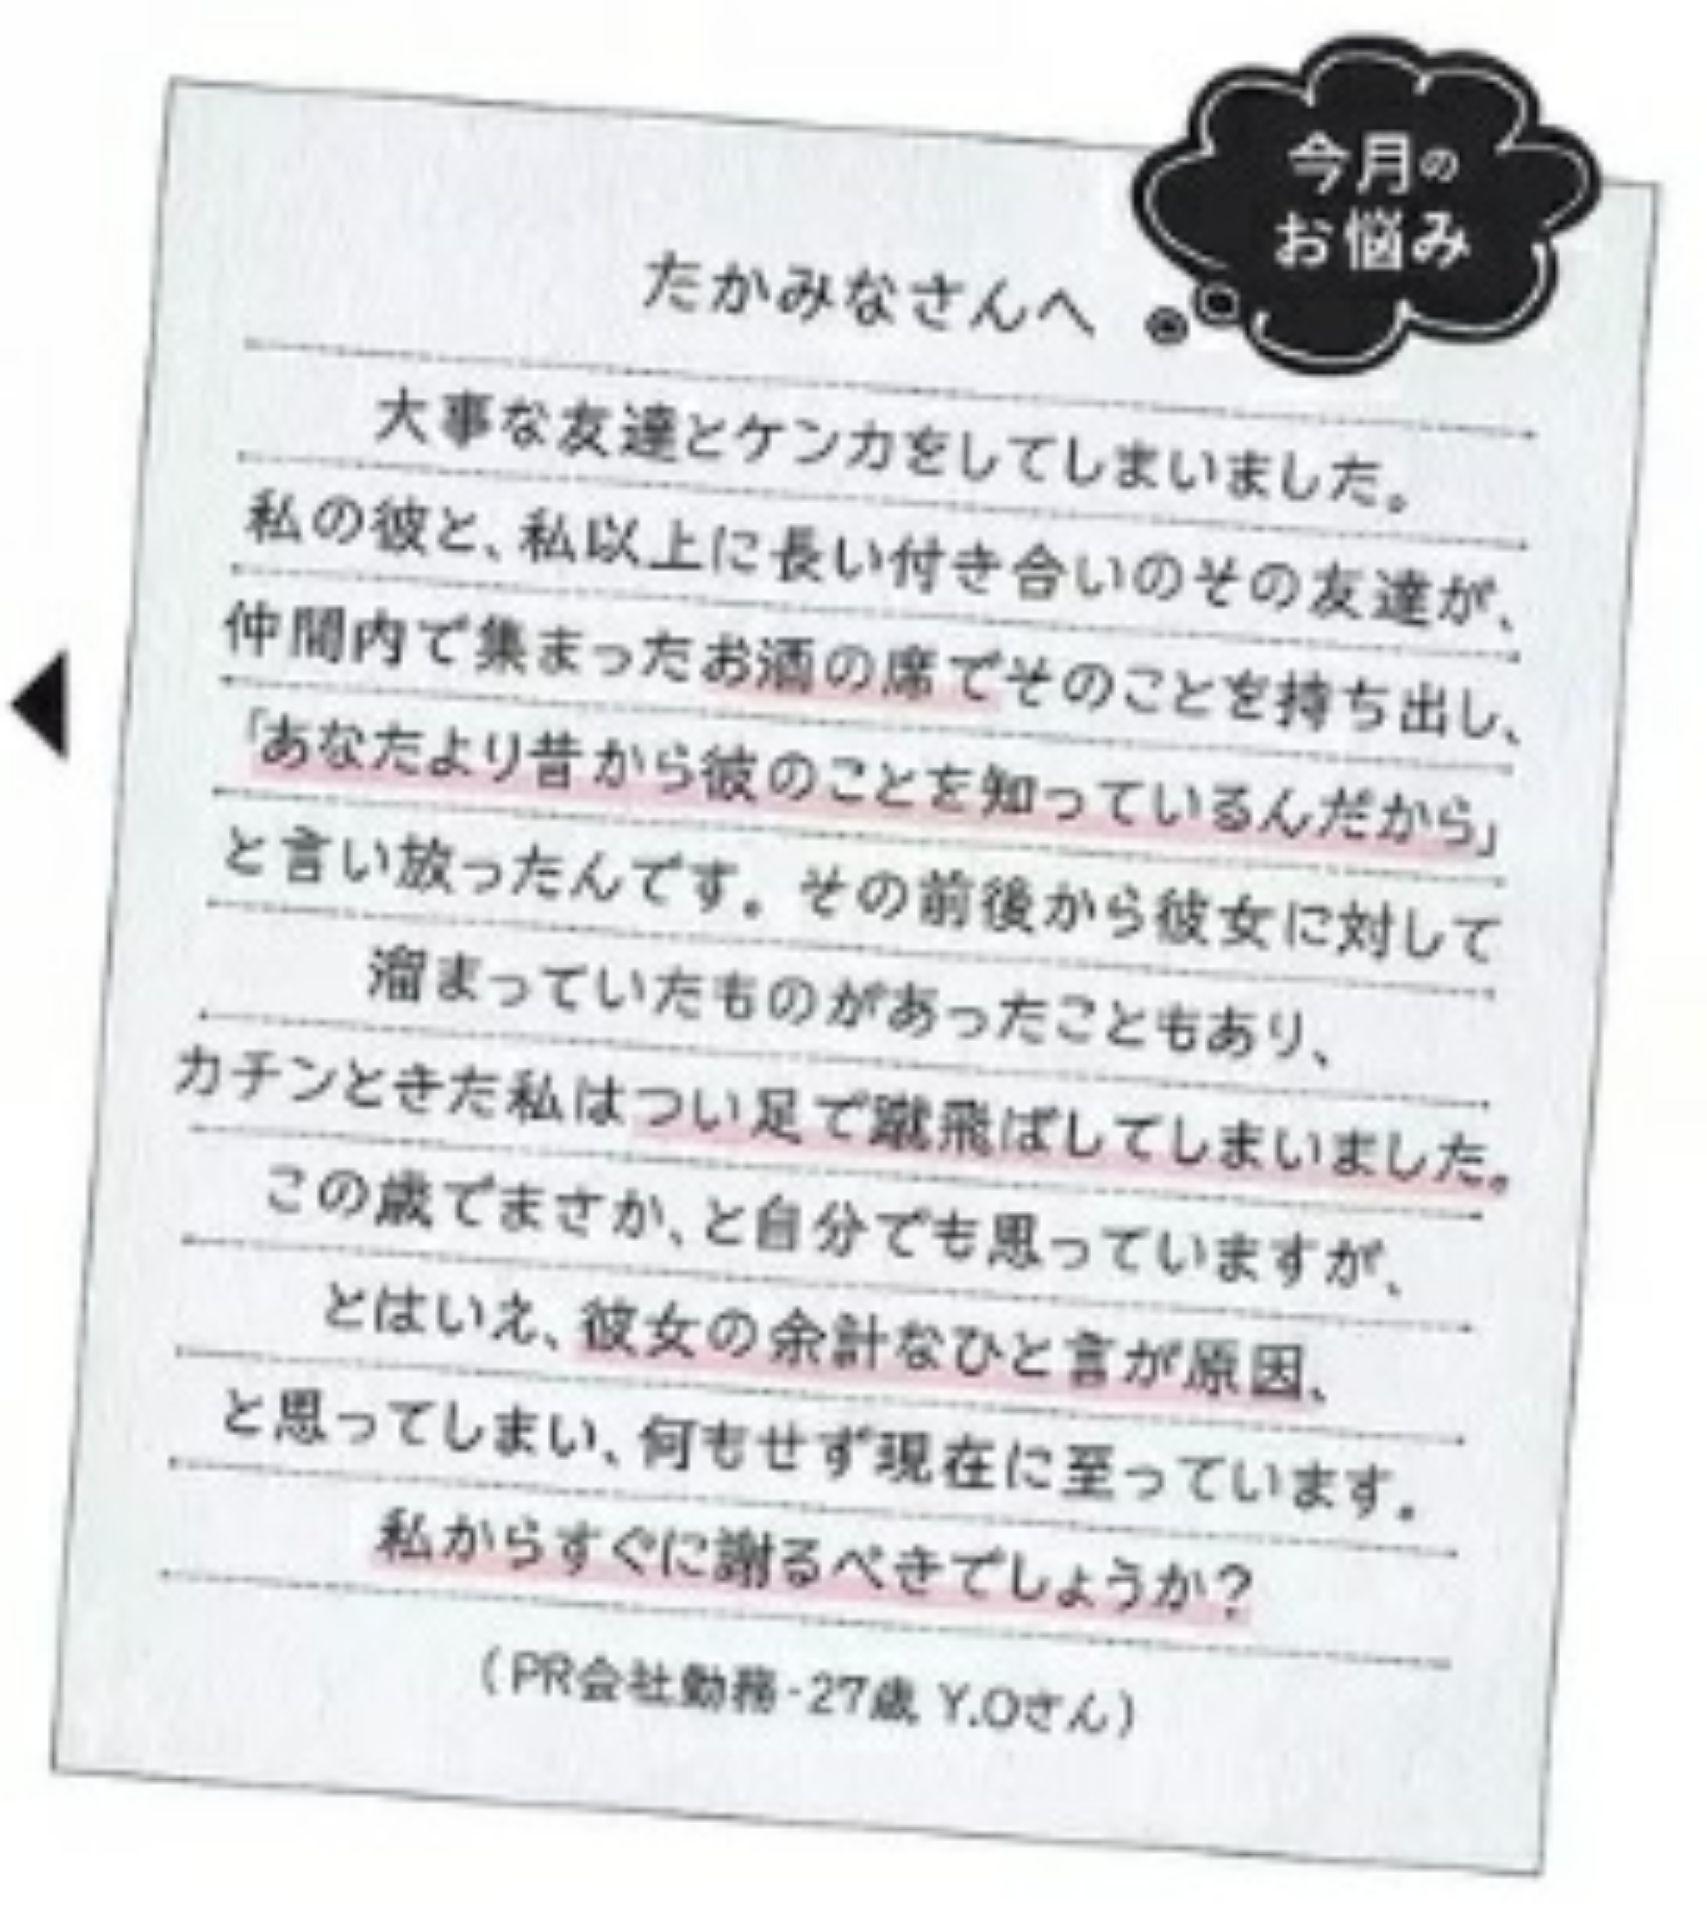 今月の
お悩み
たかみなさんへ
大事な友達とケンカをしてしまいました。
私の彼と、私以上に長い付き合いのその友達が、
仲間内で集まったお酒の席でそのことを持ち出し、
「あなたより昔から彼のことを知っているんだから」
と言い放ったんです。その前後から彼女に対して
溜まっていたものがあったこともあり、
カチンときた私はつい足で蹴飛ばしてしまいました。
この歳でまさか、と自分でも思っていますが、
とはいえ、彼女の余計なひと言が原因、
と思ってしまい、何もせず現在に至っています。
私からすぐに謝るべきでしょうか?
(PR会社勤務・27歳 Y.Oさん)